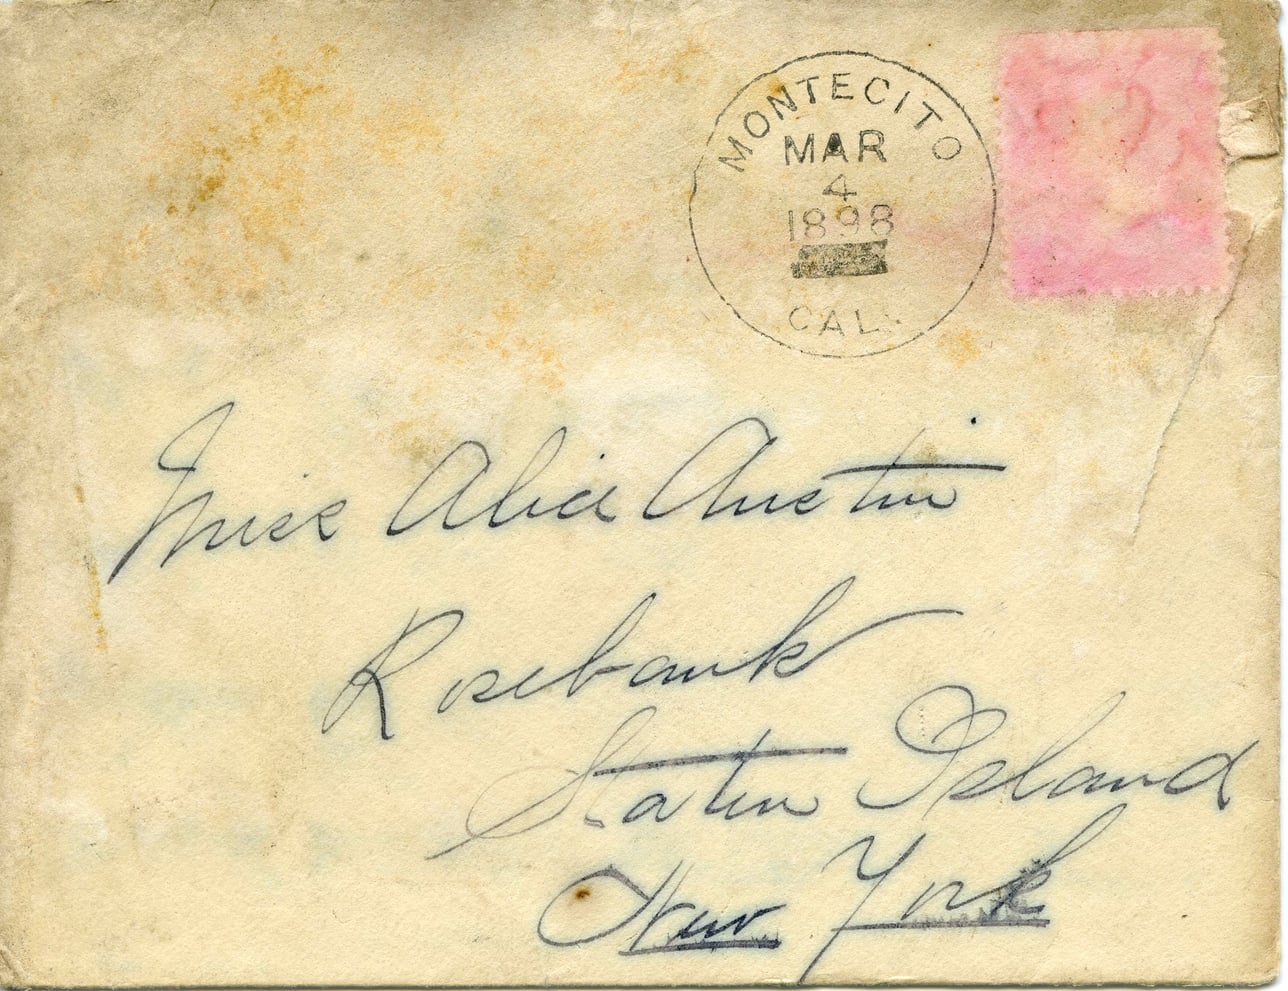 MONTECITO
MAR
4
1898
CAL.
Miss Alice Austin
Rosebank
Staten Island
New York